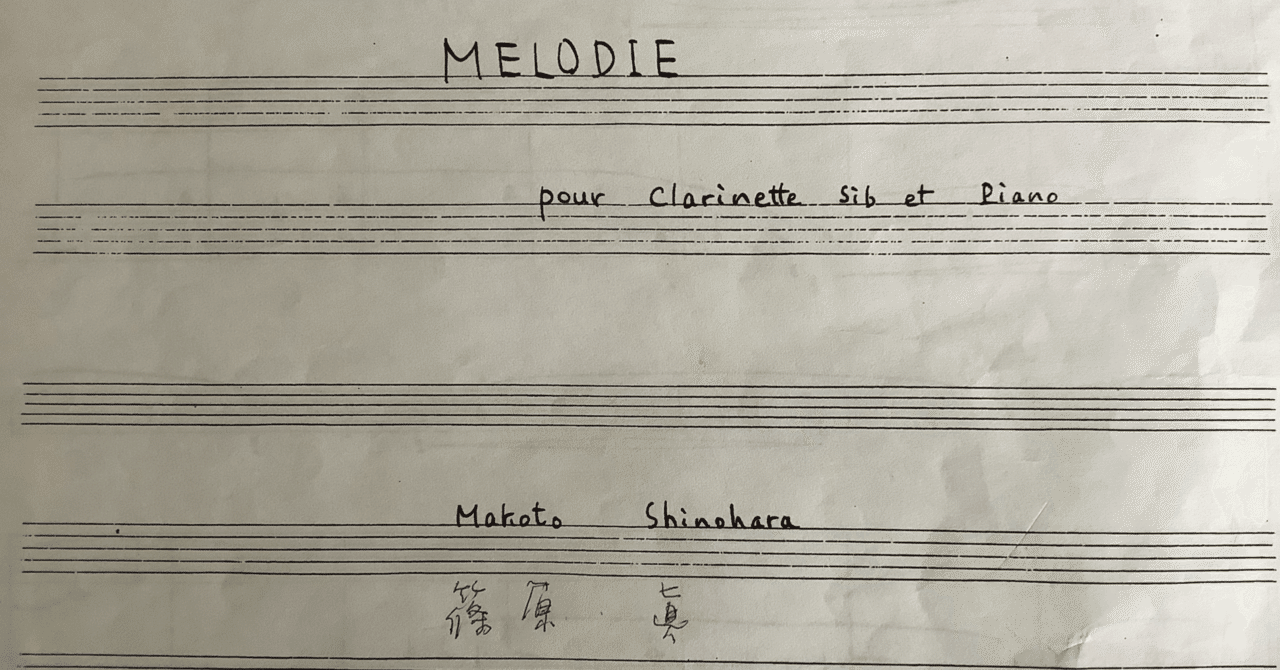 MELODIE
pour Clarinette Sib et Piano
Makoto Shinohara
篠原 眞